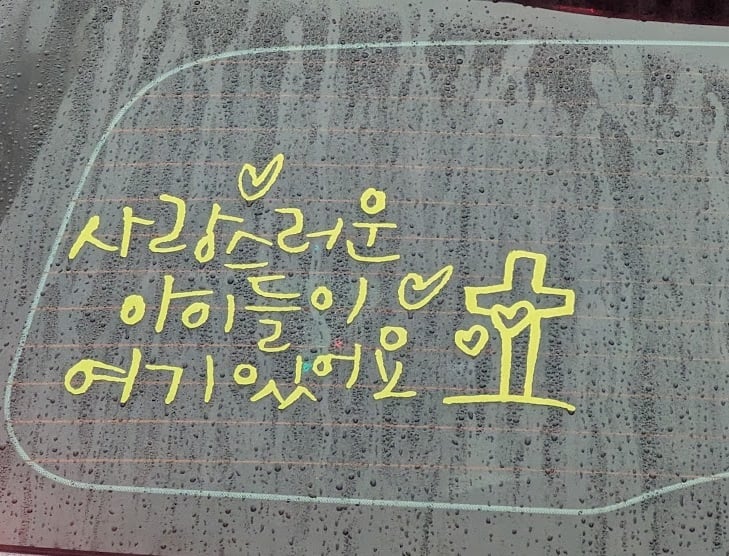 사랑스러운
아이들이
여기 있어요